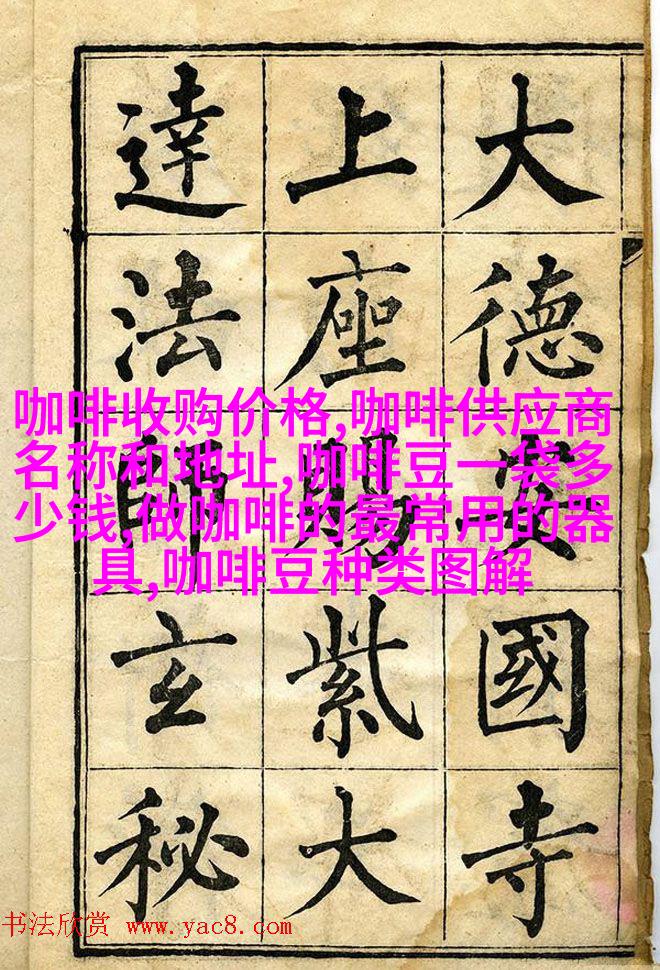 大德安國寺
上座賜紫大
達法師玄秘
咖啡收购价格,咖啡供应商
名称和地址,咖啡豆一袋多
少钱,做咖啡的最常用的器
具,咖啡豆种类图解
书法欣赏 www.yac8.com